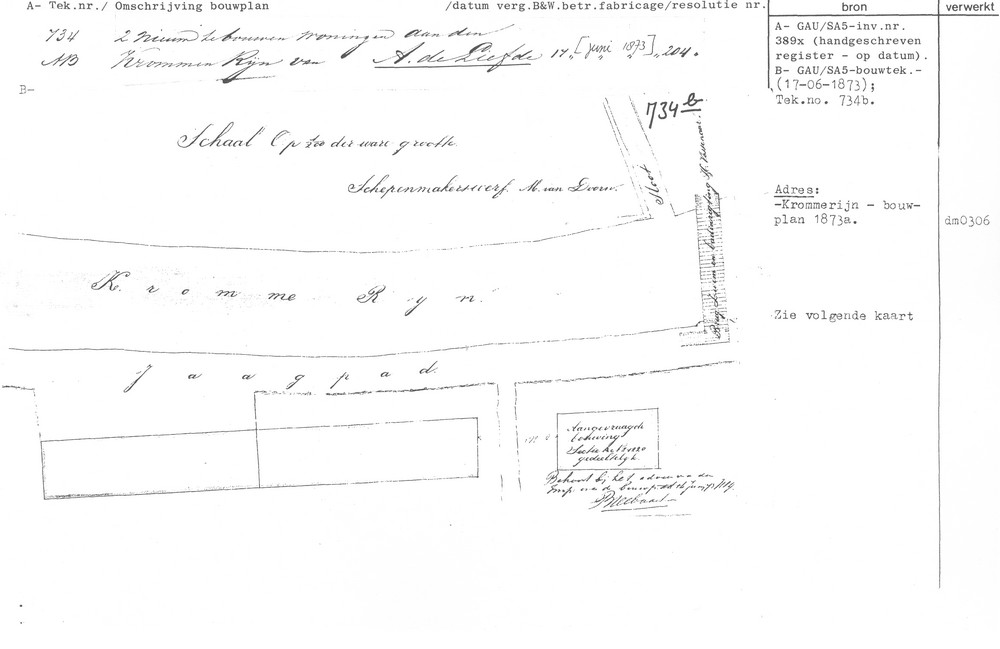 A- Tek.nr./ Omschrijving bouwplan /datum verg.B&W.betr.fabricage/resolutie nr.
bron
verwerkt
734 2 Nieuw te bouwen woningen aan den
AB Krommen Rijn van A. de Liefde 17 „ [juni 1873] „ 204.
A- GAU/SA5-inv.nr.
389x (handgeschreven
register - op datum).
B- GAU/SA5-bouwtek.-
(17-06-1873);
Tek.no. 734b.
B-
734 b
Schaal Op der ware grootte.
Schepenmakerswerf M. van Doorn.
Sloot
Brug
Adres:
-Krommerijn - bouw-
plan 1873a.
dm0306
Kromme Ryn.
Zie volgende kaart
Jaagpad.
Aangevraagde
bouwing
Sectie
gedeeltelijk.
Behoort bij het